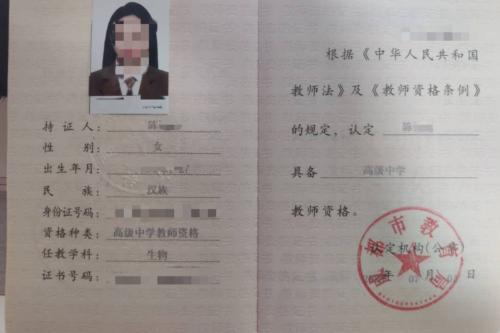 持证人： 陈
性别： 女
出生年月：
民族： 汉族
身份证号码：
资格种类： 高级中学教师资格
任教学科： 生物
证书号码：
根据《中华人民共和国
教师法》及《教师资格条例》
的规定，认定 陈
具备 高级中学
教师资格。
认定机构(公章)
市教育局
年 07 月 日